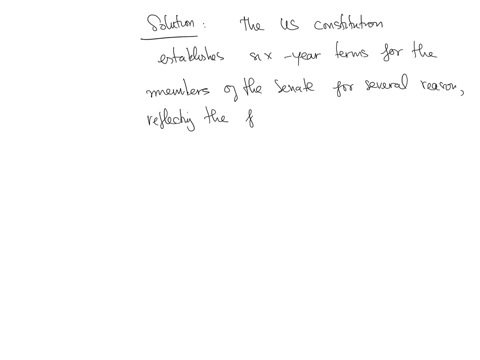 Solution: The US constitution
establishes six-year terms for the
members of the Senate for several reason,
reflecting the f